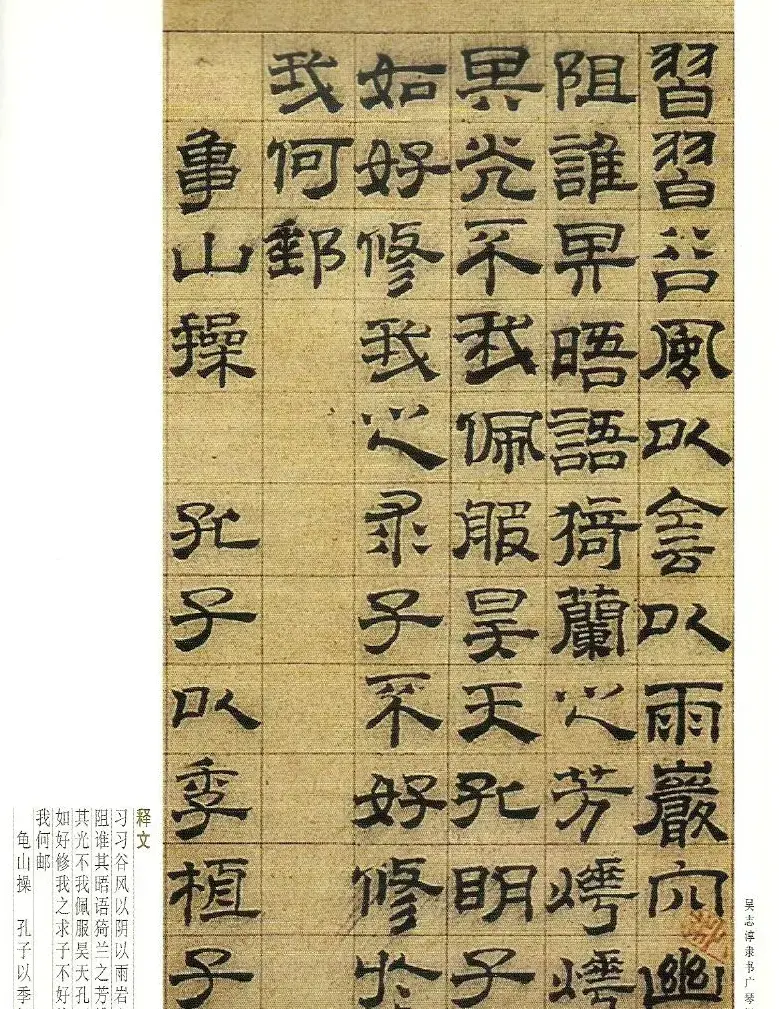 習習谷風以侌以雨巖穴幽
阻誰其晤語猗蘭之芳燁燁
其光不我佩服昊天孔明子
如好修我之求子不好修於
我何郵
龜山操 孔子以季桓子
吴志淳隶书广琴
释文
习习谷风以阴以雨岩
阻谁其晤语猗兰之芳
其光不我佩服昊天孔
如好修我之求子不好
我何邮
龟山操 孔子以季